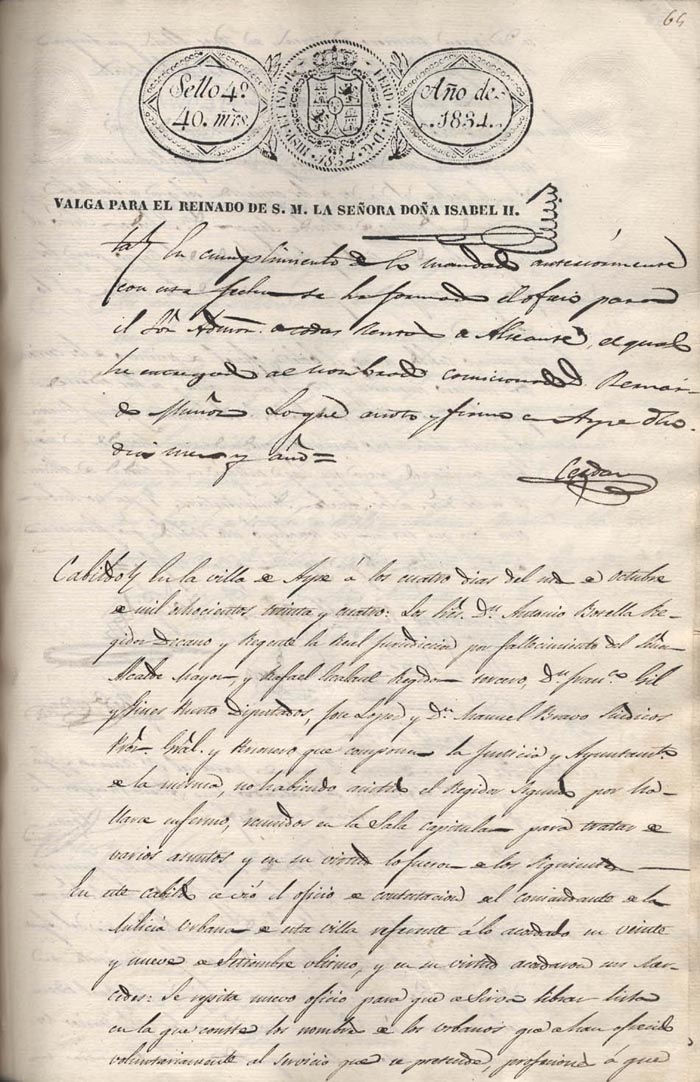 64
Sello 4º
40. mrs
HISP. ET IND. R.
1834
Año de
1834.
VALGA PARA EL REINADO DE S. M. LA SEÑORA DOÑA ISABEL II.
En cumplimiento de lo mandado anteriormente
con esta fecha se ha formado el oficio para
el Sor. Admor. de todas Rentas de Alicante, el qual
he entregado al nombrado comicionado D. Bernar-
do Muñoz. Lo que anoto y firmo en Aspe dho.
dia mes y año=
Cabildo En la villa de Aspe á los cuatro dias del mes de Octubre
de mil ochocientos treinta y cuatro: Los Sres. Dn. Antonio Botella Re-
gidor Decano y Regente la Real Jurisdicion por fallecimiento del Señor
Alcalde Mayor, y Rafael Regidor tercero, Dn. Franco. Gil
y Gines Diputados, Jose Lopez y Dn. Manuel Bravo Sindicos
Pror. Gral. y Personero que componen la Justicia y Ayuntamto.
de la misma, no habiendo asistido el Regidor segundo por ha-
llarse enfermo, reunidos en la Sala Capitular para tratar de
varios asuntos y en su virtud lo fueron de los siguientes
En este Cabildo se vió el oficio de contestacion del comandante de la
Milicia Urbana de esta villa referente á lo acordado en veinte
y nueve de Setiembre ultimo, y en su virtud acordaron sus Mer-
cedes: Se repita nuevo oficio para que se sirva librar lista
en la que conste los nombres de los urbanos que se han ofrecido
voluntariamente al servicio que se pretende, á que